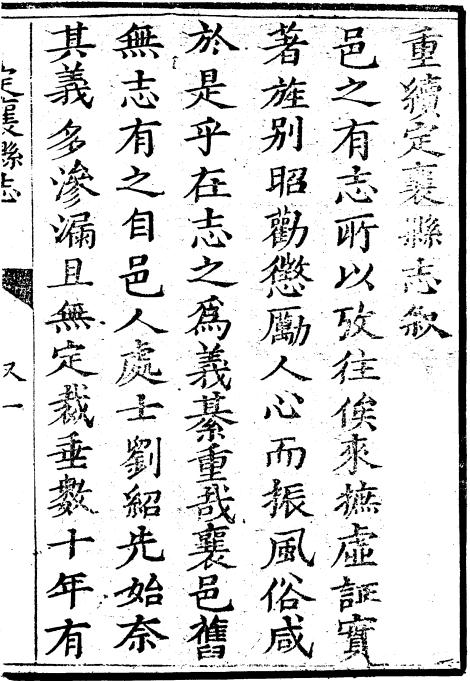 重續定襄縣志叙
邑之有志所以攷往俟來摭虛証實
著旌别昭勸懲厲人心而振風俗咸
於是乎在志之爲義綦重哉襄邑舊
無志有之自邑人處士劉紹先始奈
其義多滲漏且無定裁垂數十年有
定襄縣志
又一